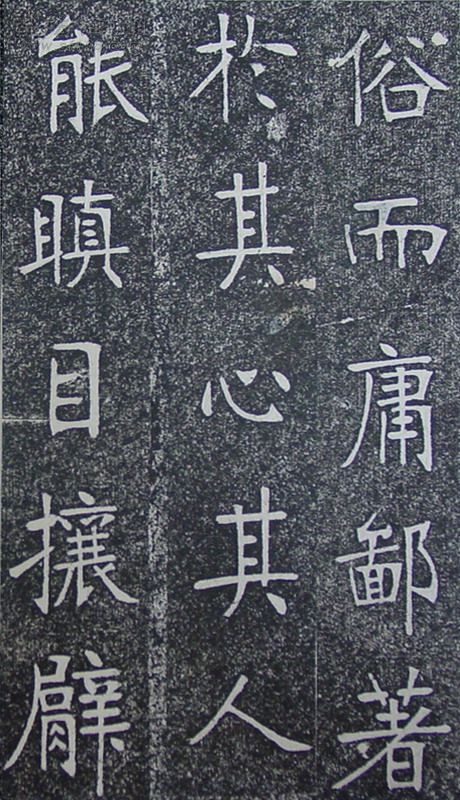 俗而庸鄙著
於其心其人
能瞋目攘臂